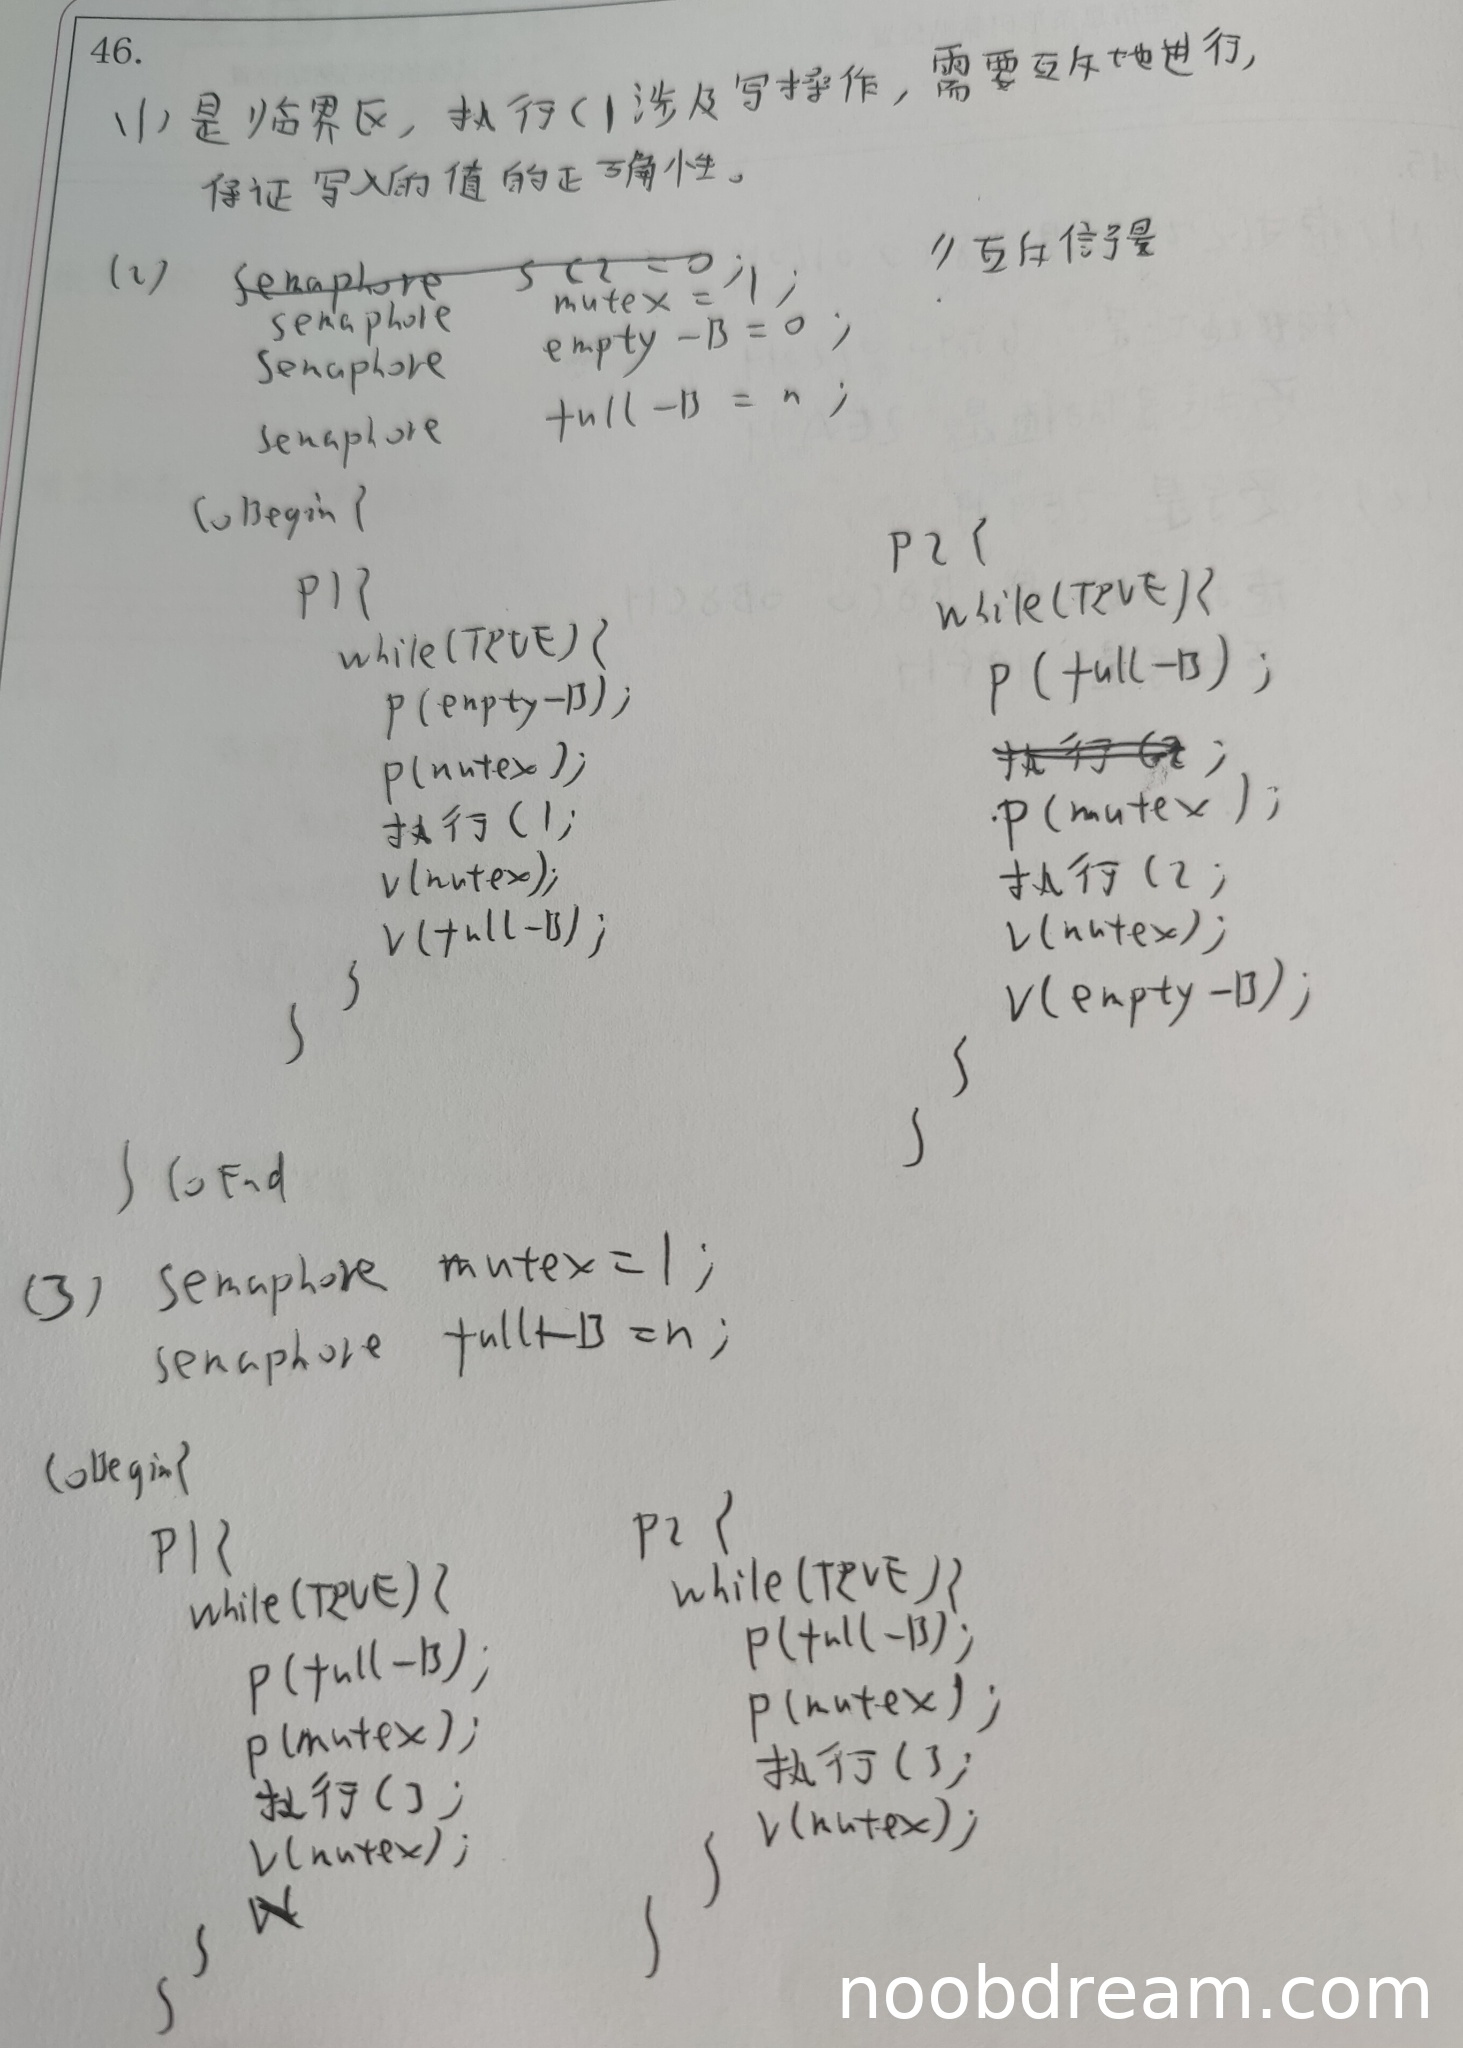 46.
(1) 是临界区, 执行C1涉及写操作, 需要互斥地进行,
保证写入的值的正确性。
(2) semaphore SC2 = 0;
semaphore mutex = 1; //互斥信号量
semaphore empty-B = 0;
semaphore full-B = n;
CoBegin{
P1{
while(TRUE){
p(empty-B);
p(mutex);
执行C1;
v(mutex);
v(full-B);
}
}
P2{
while(TRUE){
p(full-B);
执行C2;
p(mutex);
执行C2;
v(mutex);
v(empty-B);
}
}
} CoEnd
(3) semaphore mutex = 1;
semaphore full-B = n;
CoBegin{
P1{
while(TRUE){
p(full-B);
p(mutex);
执行C3;
v(mutex);
}
}
P2{
while(TRUE){
p(full-B);
p(mutex);
执行C3;
v(mutex);
}
}
noobdream.com